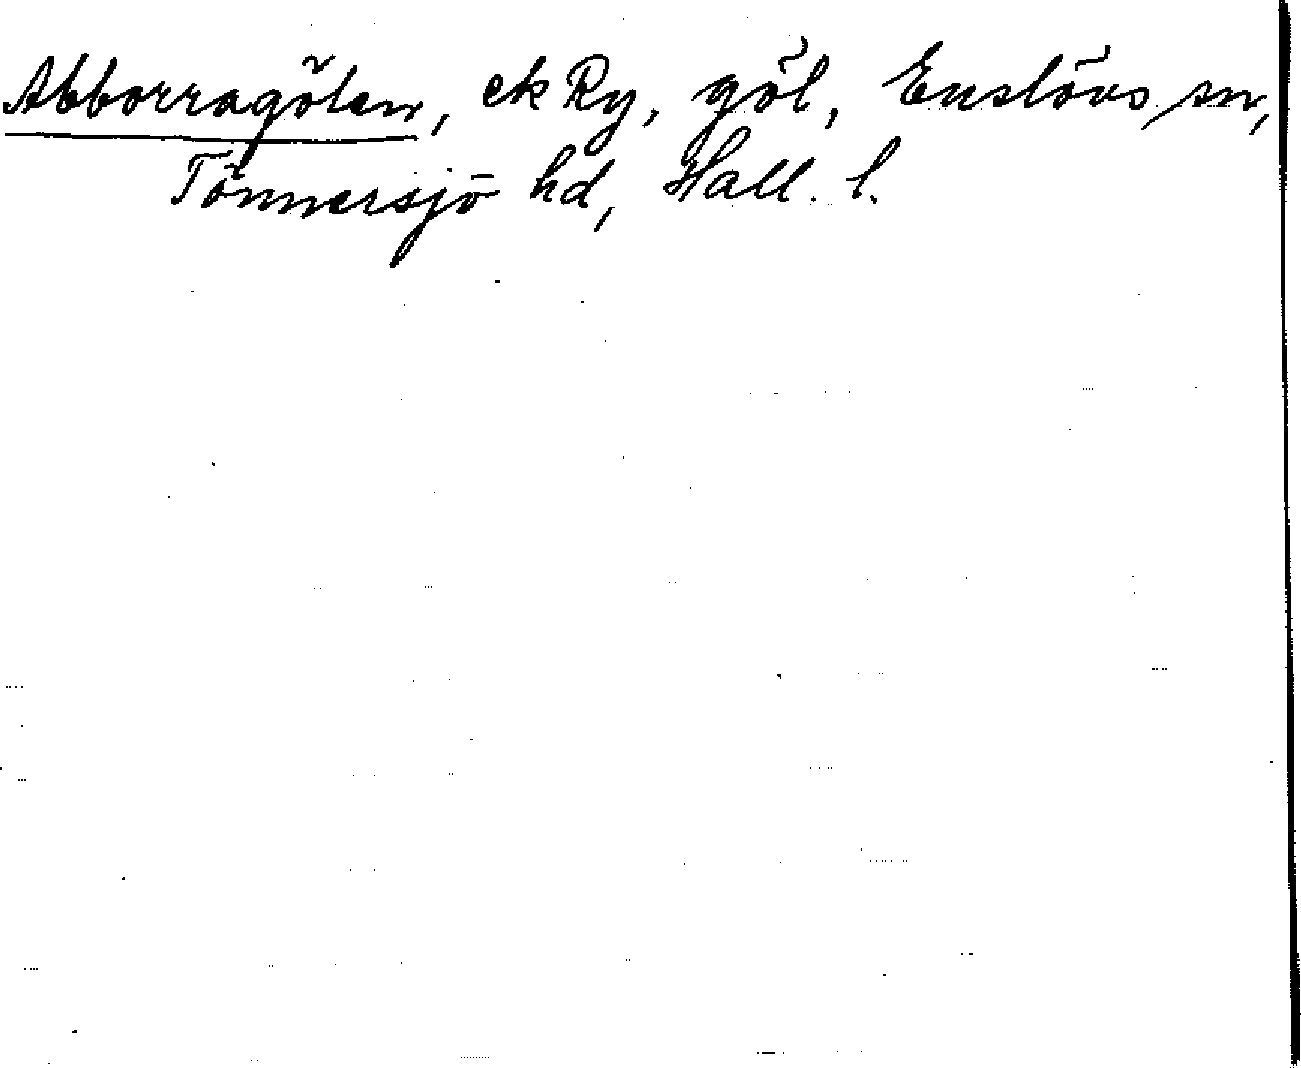 Abborragölen, ek Ry, göl, Enslövs sn,
Tönnersjö hd, Hall. l.